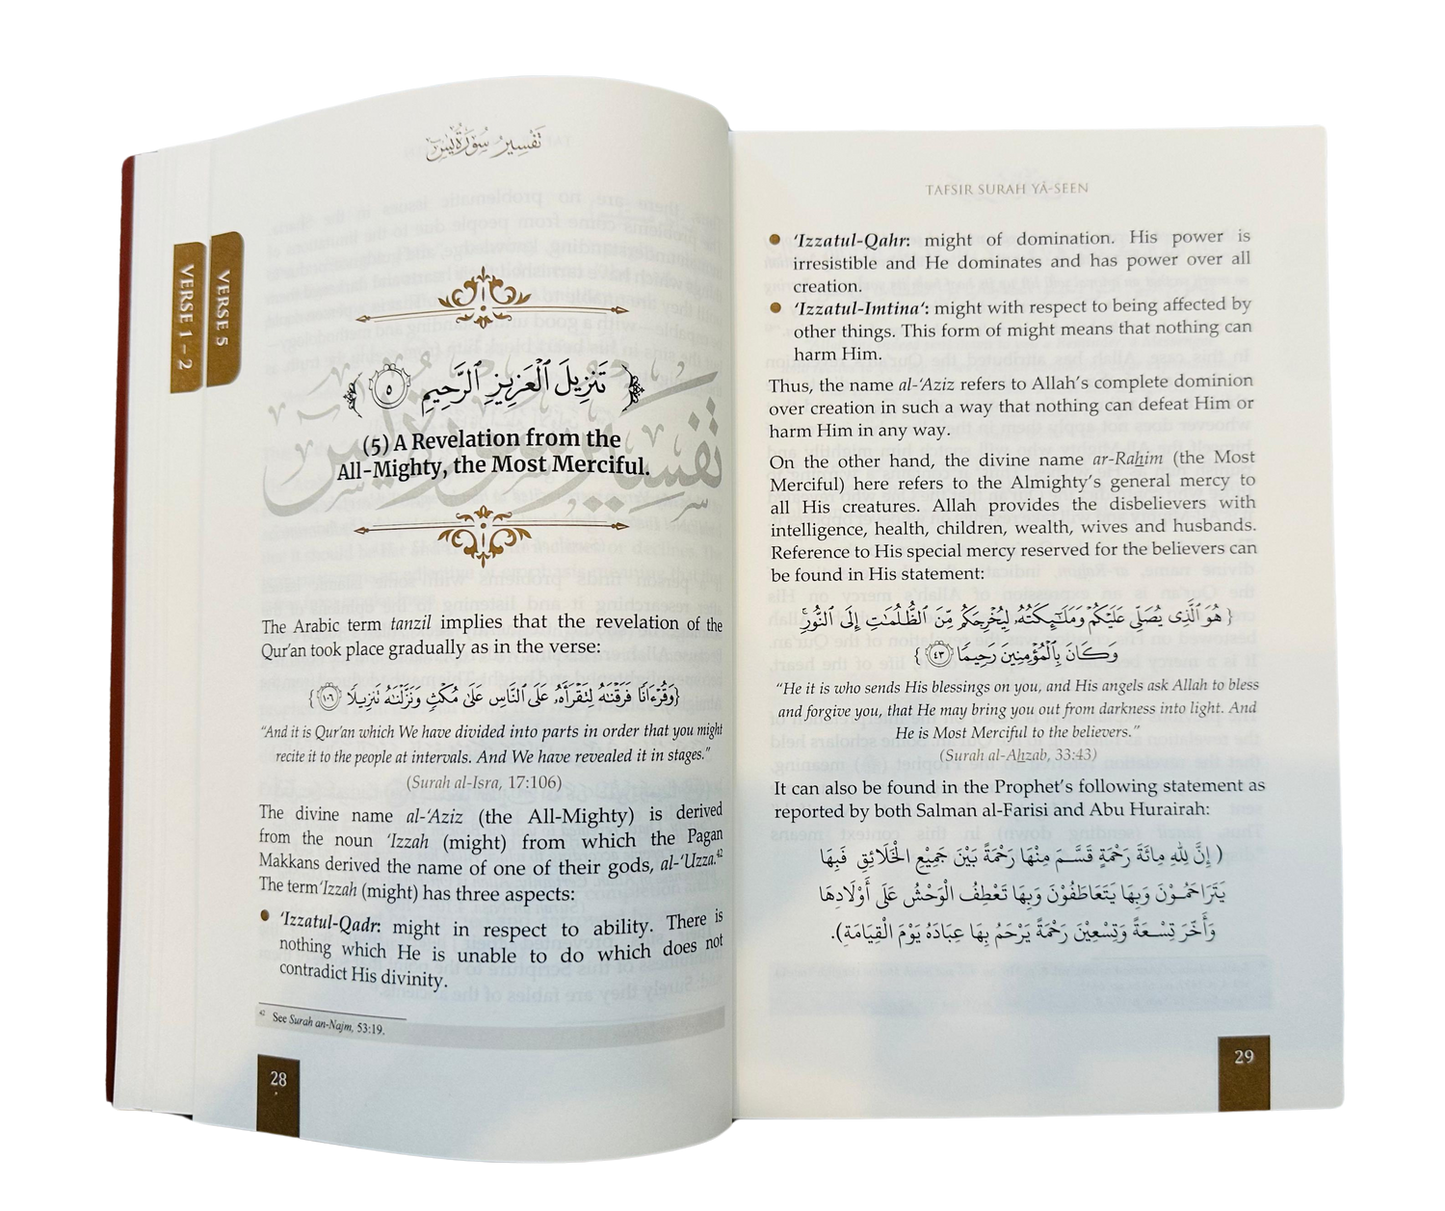 تَفْسِيرُ سُورَةِ يٰسٓ
VERSE 5
VERSE 1 – 2
تَنزِيلَ ٱلْعَزِيزِ ٱلرَّحِيمِ ٥
(5) A Revelation from the
All-Mighty, the Most Merciful.
The Arabic term tanzil implies that the revelation of the
Qur’an took place gradually as in the verse:
{وَقُرْءَانًا فَرَقْنَٰهُ لِتَقْرَأَهُۥ عَلَى ٱلنَّاسِ عَلَىٰ مُكْثٍ وَنَزَّلْنَٰهُ تَنزِيلًا ١٠٦}
“And it is Qur’an which We have divided into parts in order that you might
recite it to the people at intervals. And We have revealed it in stages.”
(Surah al-Isra, 17:106)
The divine name al-‘Aziz (the All-Mighty) is derived
from the noun ‘Izzah (might) from which the Pagan
Makkans derived the name of one of their gods, al-‘Uzza.42
The term ‘Izzah (might) has three aspects:
● ‘Izzatul-Qadr: might in respect to ability. There is
nothing which He is unable to do which does not
contradict His divinity.
42 See Surah an-Najm, 53:19.
28
TAFSIR SURAH YĀ-SEEN
● ‘Izzatul-Qahr: might of domination. His power is
irresistible and He dominates and has power over all
creation.
● ‘Izzatul-Imtina‘: might with respect to being affected by
other things. This form of might means that nothing can
harm Him.
Thus, the name al-‘Aziz refers to Allah’s complete dominion
over creation in such a way that nothing can defeat Him or
harm Him in any way.
On the other hand, the divine name ar-Rahim (the Most
Merciful) here refers to the Almighty’s general mercy to
all His creatures. Allah provides the disbelievers with
intelligence, health, children, wealth, wives and husbands.
Reference to His special mercy reserved for the believers can
be found in His statement:
{ هُوَ ٱلَّذِى يُصَلِّى عَلَيْكُمْ وَمَلَٰٓئِكَتُهُۥ لِيُخْرِجَكُم مِّنَ ٱلظُّلُمَٰتِ إِلَى ٱلنُّورِ ۚ
وَكَانَ بِٱلْمُؤْمِنِينَ رَحِيمًا ٤٣ }
“He it is who sends His blessings on you, and His angels ask Allah to bless
and forgive you, that He may bring you out from darkness into light. And
He is Most Merciful to the believers.”
(Surah al-Ahzab, 33:43)
It can also be found in the Prophet’s following statement as
reported by both Salman al-Farisi and Abu Hurairah:
( إِنَّ لِلّٰهِ مِائَةَ رَحْمَةٍ قَسَّمَ مِنْهَا رَحْمَةً بَيْنَ جَمِيْعِ الْخَلَائِقِ فَبِهَا
يَتَرَاحَمُوْنَ وَبِهَا يَتَعَاطَفُوْنَ وَبِهَا تَعْطِفُ الْوَحْشُ عَلَى أَوْلَادِهَا
وَأَخَّرَ تِسْعَةً وَتِسْعِيْنَ رَحْمَةً يَرْحَمُ بِهَا عِبَادَهُ يَوْمَ الْقِيَامَةِ).
29